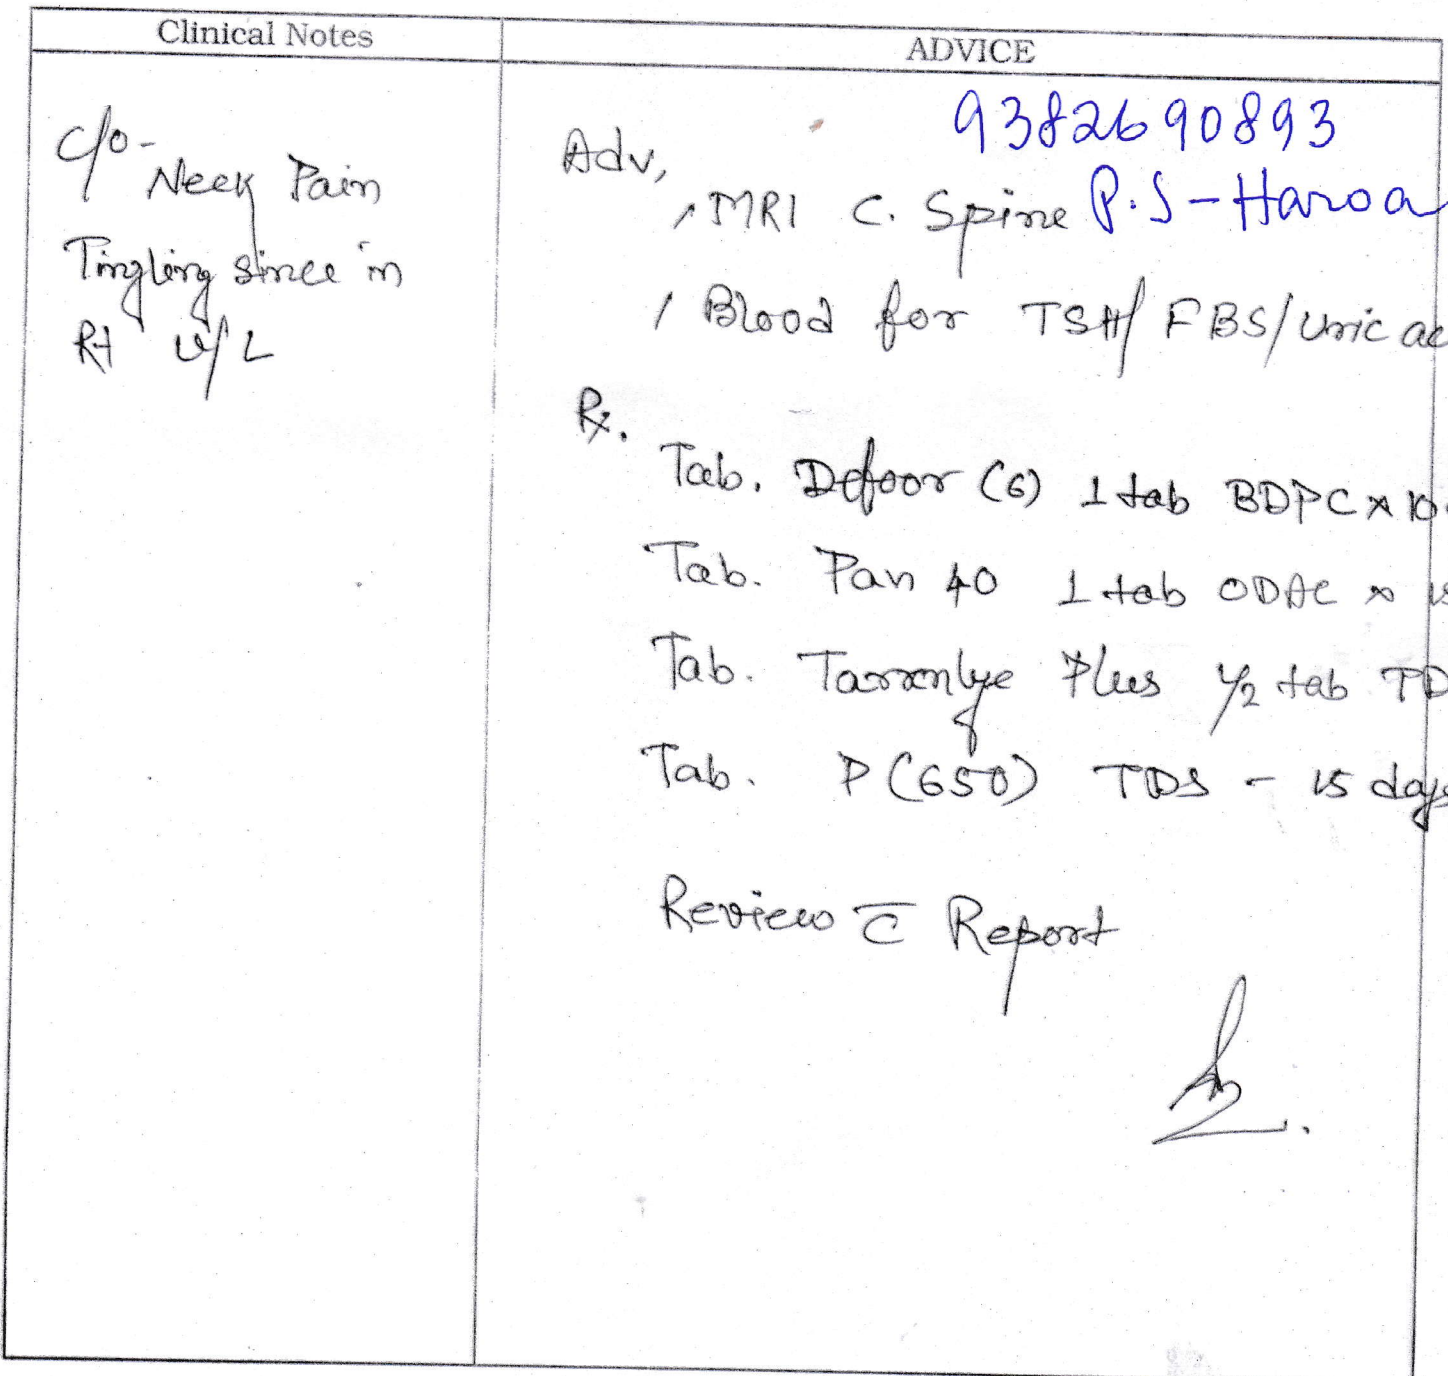 Clinical Notes
ADVICE
C/o - Neck Pain
Tingling since in
Rt U/L
9382690893
Adv,
MRI C. Spine P.S - Haroa
Blood for TSH/ FBS/ Uric ac
Rx.
Tab. Defoor (6) 1 tab BDPC x 10
Tab. Pan 40 1 tab ODAC x 15
Tab. Plus 1/2 tab TD
Tab. P (650) TDS - 15 days
Review c̄ Report